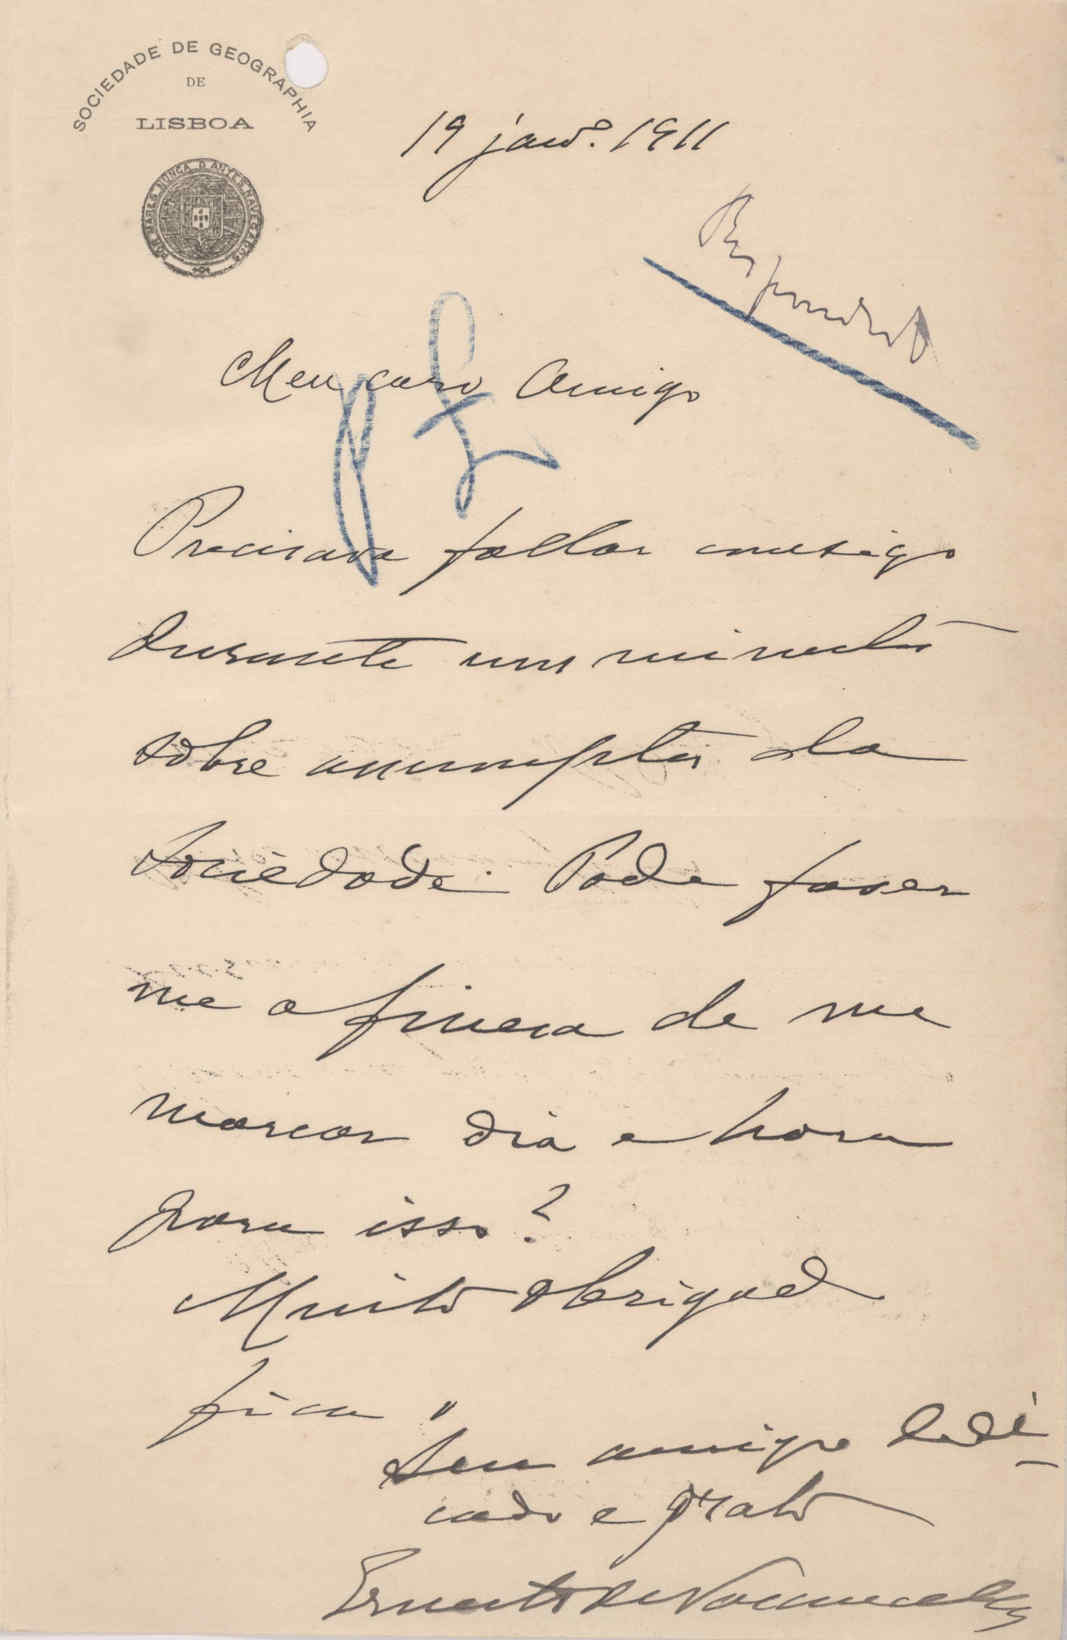 SOCIEDADE DE GEOGRAPHIA
DE
LISBOA
POR MARES NUNCA D'ANTES NAVEGADOS
19 janº. 1911
Respondido
Meu caro Amigo
Precisava fallar comsigo
durante uns minutos
sobre assumptos da
Sociedade. Pode fazer
me a fineza de me
marcar dia e hora
para isso?
Muito obrigado
fica o
seu amigo dedi-
cado e grato
Ernesto de Vasconcellos